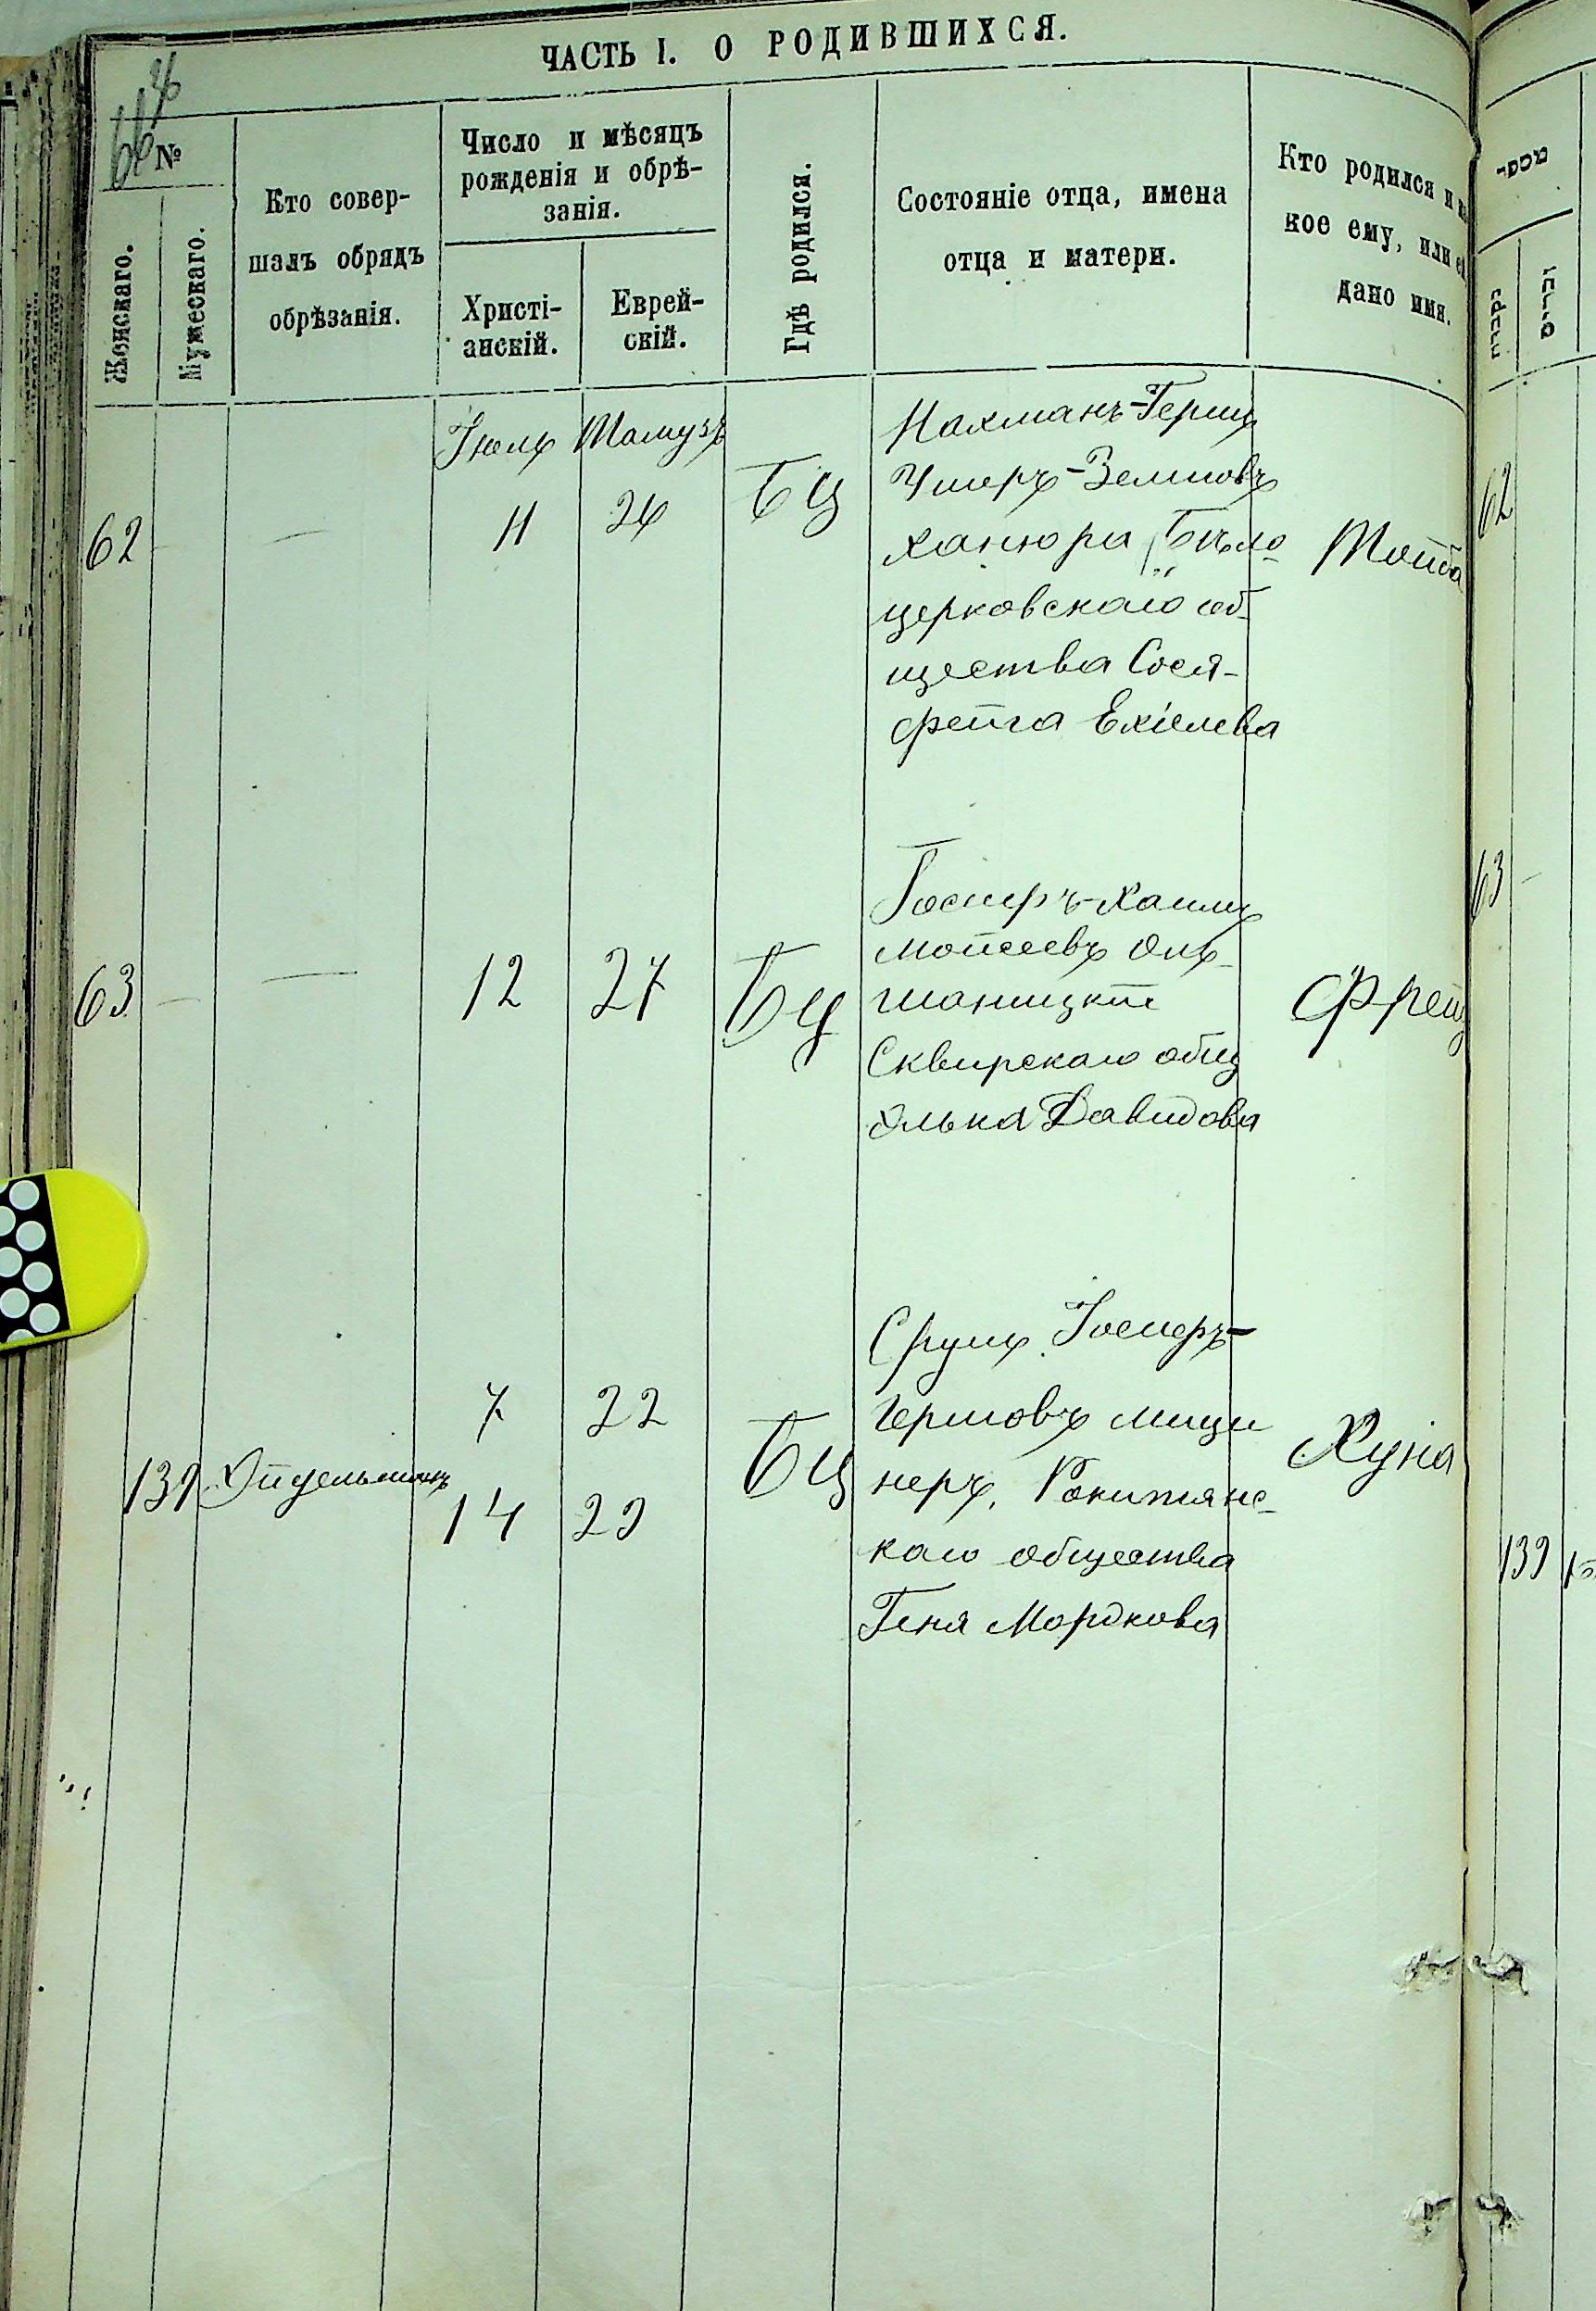 ЧАСТЬ I. О РОДИВШИХСЯ.
№
Женскаго.
Мужескаго.
Кто совер-
шалъ обрядъ
обрѣзанія.
Число и мѣсяцъ
рожденія и обрѣ-
занія.
Христі-
анскій.
Еврей-
скій.
Гдѣ родился.
Состояніе отца, имена
отца и матери.
Кто родился и
кое ему, или
дано имя.
נקבות
זכרים
Іюль Тамузъ
62 — 11 26 БЦ
Нахманъ-Герш
Ушеръ-Зельмовъ
Ханюра Бѣло-
церковскаго об-
щества Сося-
фейга Ехіелева
Тойба
62
63 — — 12 27 БЦ
Іосифъ-Хаимъ
Мойсеевъ Оль-
шаницкій
Сквирскаго общ
Элька Давидова
Фрейд
63
139 Эйдельманъ 7 22 БЦ
14 29
Сруль Іосифъ-
Гершовъ Мици
неръ, Рокитянс-
каго общества
Геня Мордкова
Хуна
139